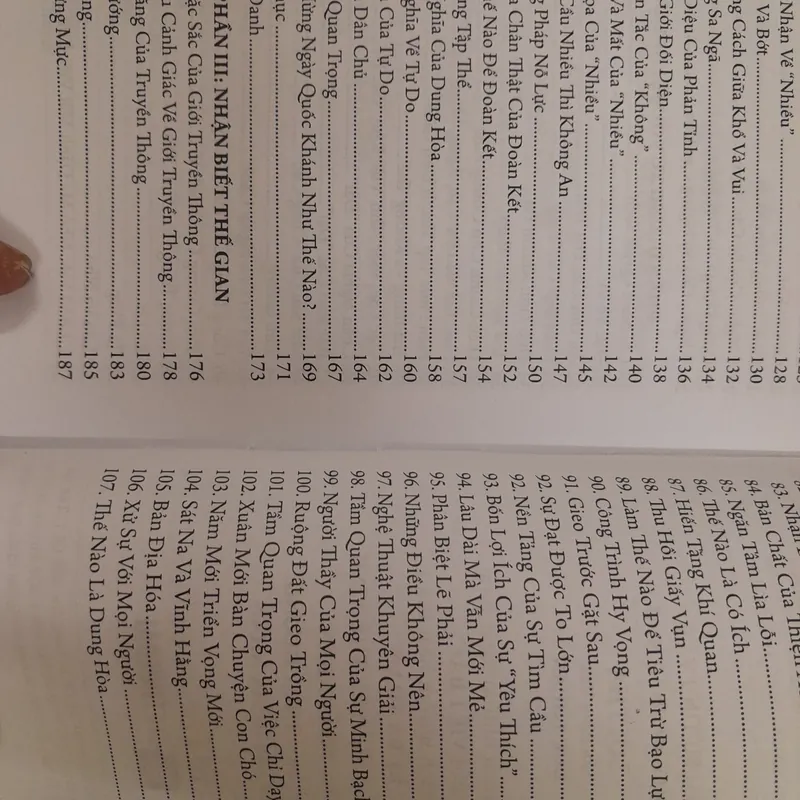 Nhận Về “Nhiều” ........ 128
Và Bớt........ 130
Cách Giữa Khổ Và Vui........ 132
Sa Ngã........ 134
Diệu Của Phản Tỉnh........ 136
Giới Đối Diện........ 138
Tắc Của “Không” ........ 140
Và Mất Của “Nhiều” ........ 142
Của “Nhiều” ........ 145
Cầu Nhiều Thì Không An ........ 147
Pháp Nỗ Lực ........ 150
Chân Thật Của Đoàn Kết........ 152
Nào Để Đoàn Kết........ 154
Tập Thể........ 157
Nghĩa Của Dung Hòa........ 158
Nghĩa Về Tự Do........ 160
Của Tự Do........ 162
Dân Chủ ........ 164
Quan Trọng........ 167
Mừng Ngày Quốc Khánh Như Thế Nào?........ 169
........ 171
Danh........ 173
PHẦN III: NHẬN BIẾT THẾ GIAN
Sắc Của Giới Truyền Thông........ 176
Cảnh Giác Về Giới Truyền Thông........ 178
Của Truyền Thông........ 180
........ 183
........ 185
Mực........ 187
83. Nhân
84. Bản Chất Của Thiện
85. Ngăn Tâm Lìa Lỗi........
86. Thế Nào Là Có Ích ........
87. Hiến Tặng Khí Quan........
88. Thu Hồi Giấy Vụn ........
89. Làm Thế Nào Để Tiêu Trừ Bạo
90. Công Trình Hy Vọng ........
91. Gieo Trước Gặt Sau........
92. Sự Đạt Được To Lớn........
92. Nền Tảng Của Sự Tìm Cầu ........
93. Bốn Lợi Ích Của Sự “Yêu Thích”
94. Lâu Dài Mà Vẫn Mới Mẻ........
95. Phân Biệt Lẽ Phải ........
96. Những Điều Không Nên........
97. Nghệ Thuật Khuyên Giải........
98. Tầm Quan Trọng Của Sự Minh Bạch
99. Người Thầy Của Mọi Người........
100. Ruộng Đất Gieo Trồng ........
101. Tầm Quan Trọng Của Việc Chỉ Dạy
102. Xuân Mới Bàn Chuyện Con Chó........
103. Năm Mới Triển Vọng Mới ........
104. Sát Na Và Vĩnh Hằng........
105. Bản Địa Hóa........
106. Xử Sự Với Mọi Người........
107. Thế Nào Là Dung Hòa........